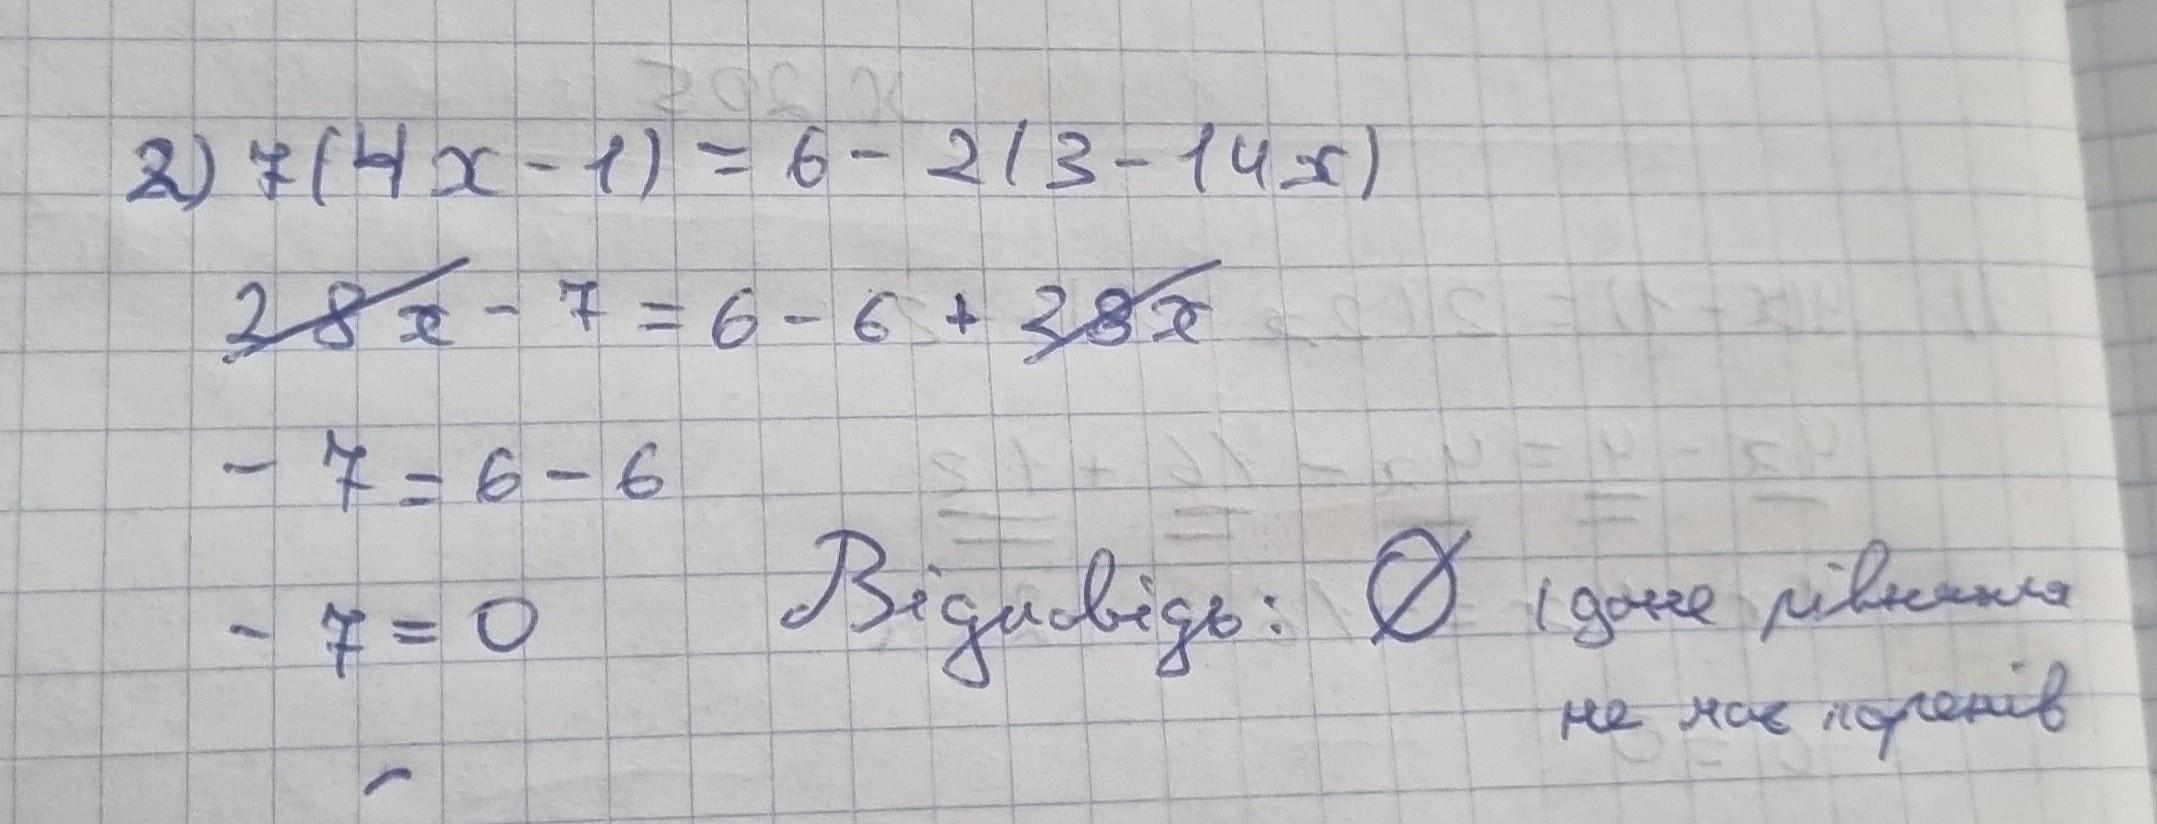 2) 7(4x - 1) = 6 - 2(3 - 14x)
28x - 7 = 6 - 6 + 28x
- 7 = 6 - 6
- 7 = 0
Відповідь: Ø (дане рівняння
не має коренів